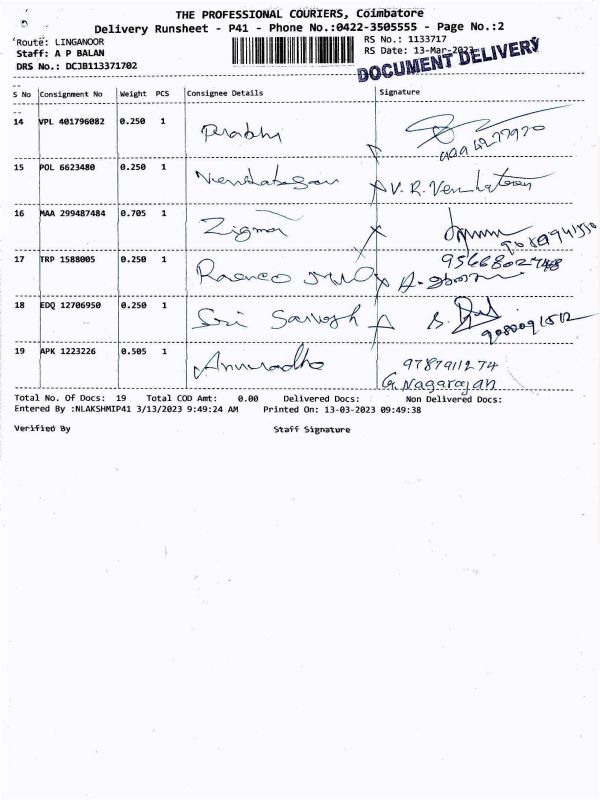 THE PROFESSIONAL COURIERS, Coimbatore
Delivery Runsheet - P41 - Phone No.:0422-3505555 - Page No.:2
Route: LINGANOOR
RS No.: 1133717
Staff: A P BALAN
RS Date: 13-Mar-2023
DRS No.: DCJB113371702
DOCUMENT DELIVERY
S No Consignment No Weight PCS Consignee Details Signature
14 VPL 401796082 0.250 1 Prabhu
15 POL 6623480 0.250 1 Venkatesan V.R. Venkatesan
16 MAA 299487484 0.705 1 Zigma
17 TRP 1588005 0.250 1
18 EDQ 12706950 0.250 1 Sri
19 APK 1223226 0.505 1 Anuradha 9787911274
G. Nagarajan
Total No. Of Docs: 19 Total COD Amt: 0.00 Delivered Docs: Non Delivered Docs:
Entered By :NLAKSHMIP41 3/13/2023 9:49:24 AM Printed On: 13-03-2023 09:49:38
Verified By Staff Signature